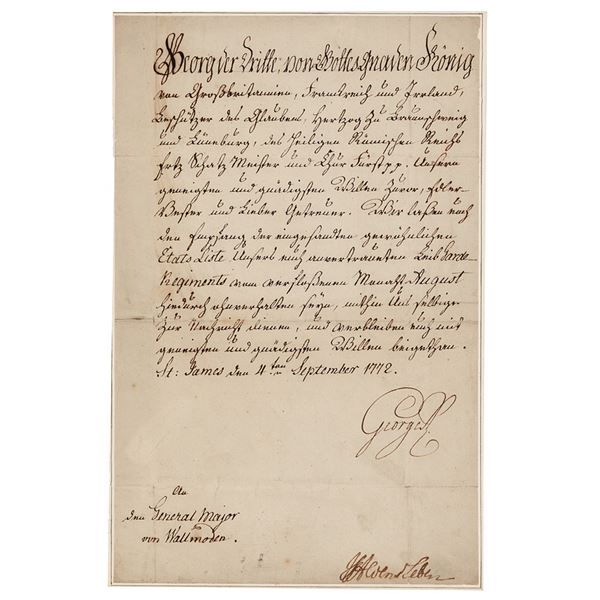 George der Dritte, von Gottes Gnaden König
von Großbritannien, Frankreich und Irrland,
Beschützer des Glaubens, Hertzog zu Braunschweig
und Lüneburg, des Heiligen Römischen Reichs
Ertz Schatz Meister und Chur Fürst p.p. Unsern
geneigten und gnädigsten Willen zuvor, Edler
Vester und Lieber Getreuer. Wir laßen euch
den Empfang der eingesandten gewöhnlichen
Etats Liste Unsers euch anvertraueten Leib Garde
Regiments vom verfloßenen Monaht August
hiedurch ohnverhalten seyn, mithin Uns selbige
zur Nachricht dienen, und verbleiben euch mit
geneigten und gnädigsten Willen beigethan.
St: James den 4ten September 1772.
George R.
An
den General Major
von Wallmoden.